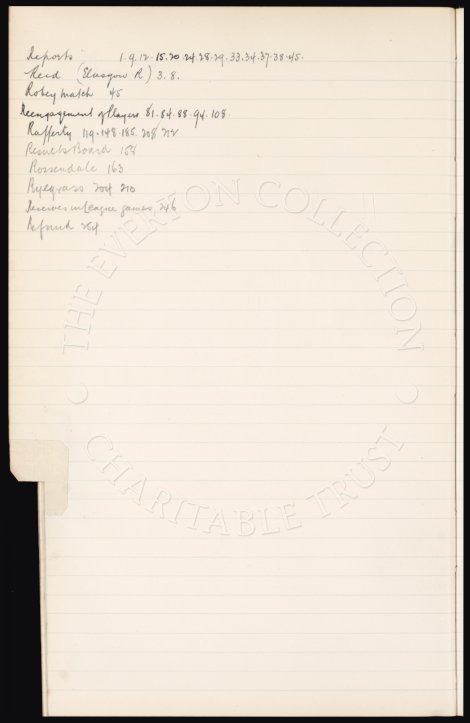 Reports 1.9.12.15.20.24.28.29.33.34.37.38.45.
Reid (Glasgow R) 3.8.
Robey match 45
Reengagement of Players 81.84.88.94.108.
Rafferty 119.148.185.208 212
Results Board 158
Rossendale 163
Ryegrass 204 210
Reserves in League games, 246
Refund 254
THE EVERTON COLLECTION
CHARITABLE TRUST